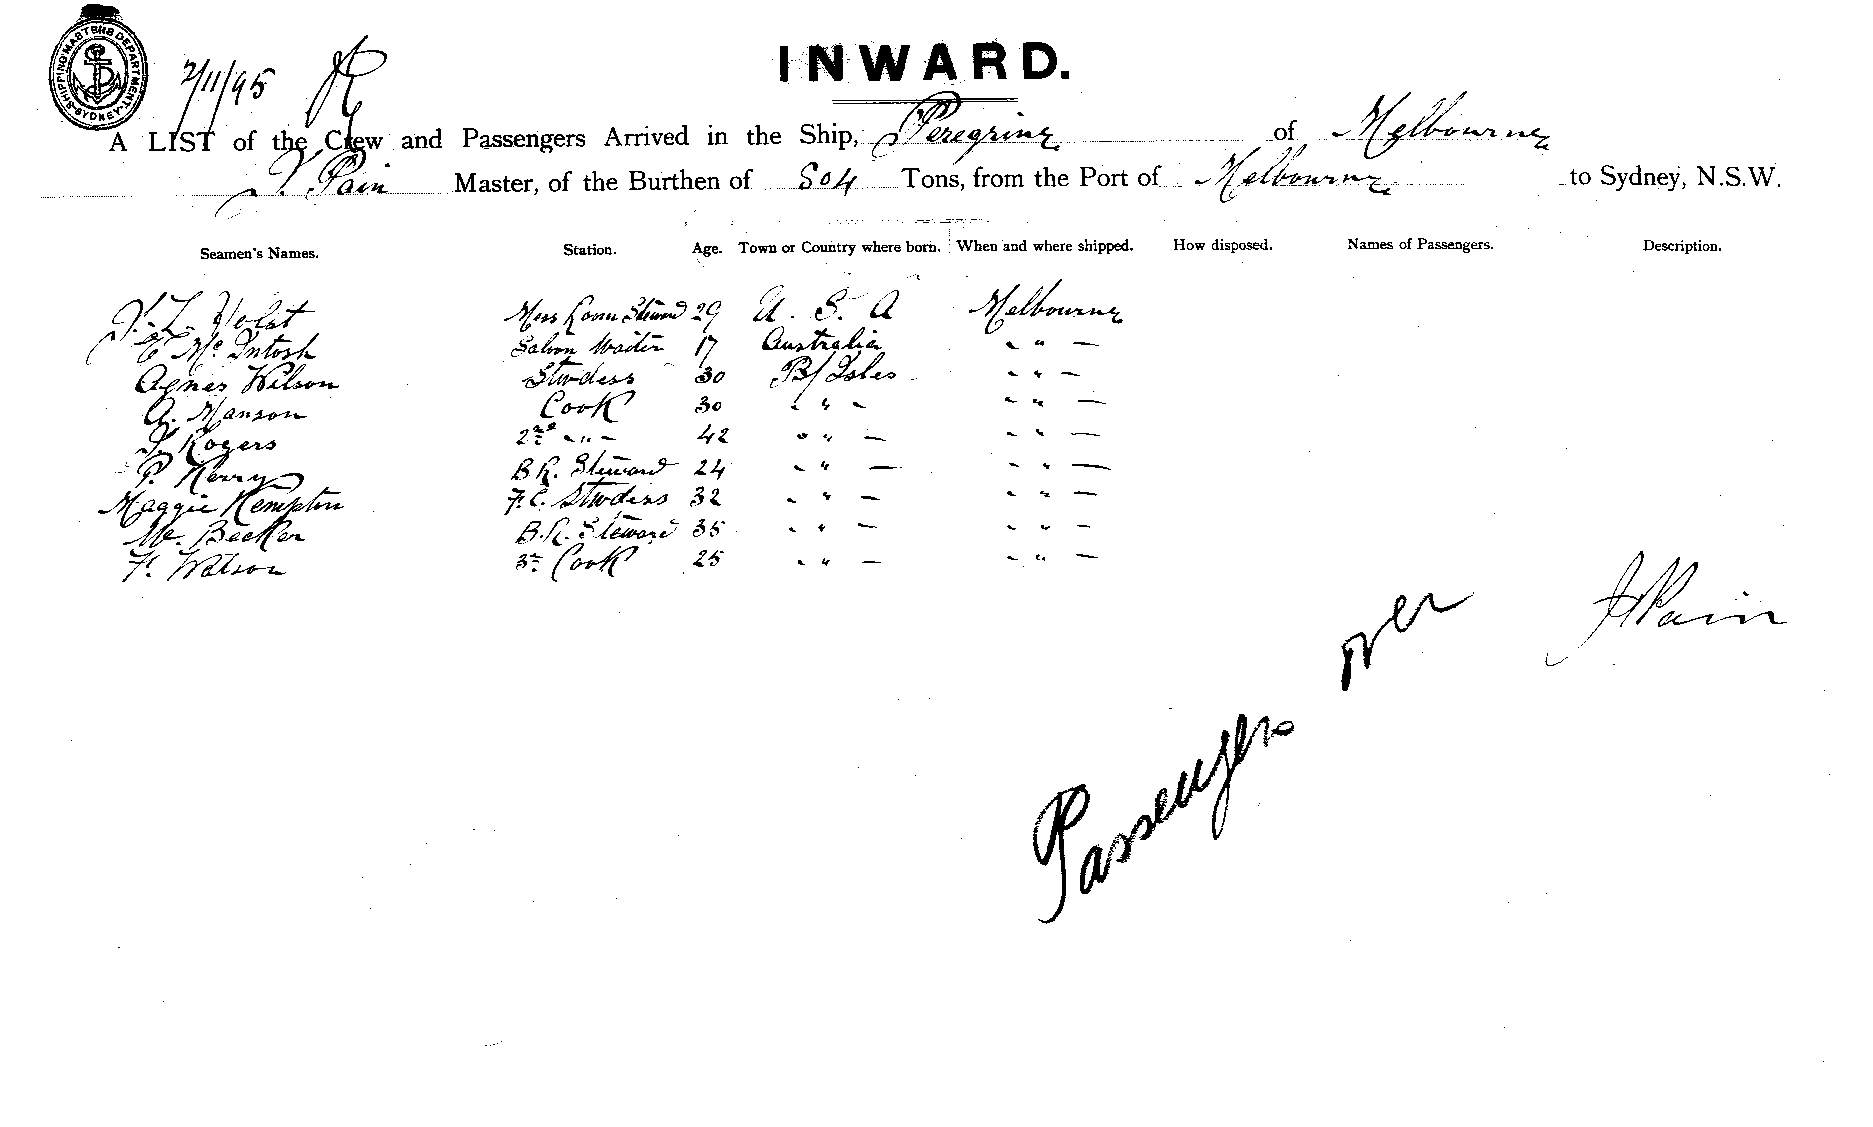 SHIPPING MASTERS DEPARTMENT. SYDNEY
2/11/95
INWARD.
A LIST of the Crew and Passengers Arrived in the Ship, Peregrine of Melbourne
J. Pain Master, of the Burthen of 804 Tons, from the Port of Melbourne to Sydney, N.S.W.
Seamen's Names. Station. Age. Town or Country where born. When and where shipped. How disposed. Names of Passengers. Description.
Holst Mess Room Steward 29 U. S. A Melbourne
E Mc Intosh Saloon Waiter 17 Australia - " -
Agnes Wilson Stwdess 30 B/ Isles - " -
A. Manson Cook 30 - " - - " -
J. Rogers 2nd - " - 42 - " - - " -
P. Kerry B R. Steward 24 - " - - " -
Maggie Kempton F. C. Stwdess 32 - " - - " -
We. Becker B.R. Steward 35 - " - - " -
F. Watson 3rd Cook 25 - " - - " -
J Pain
Passengers over